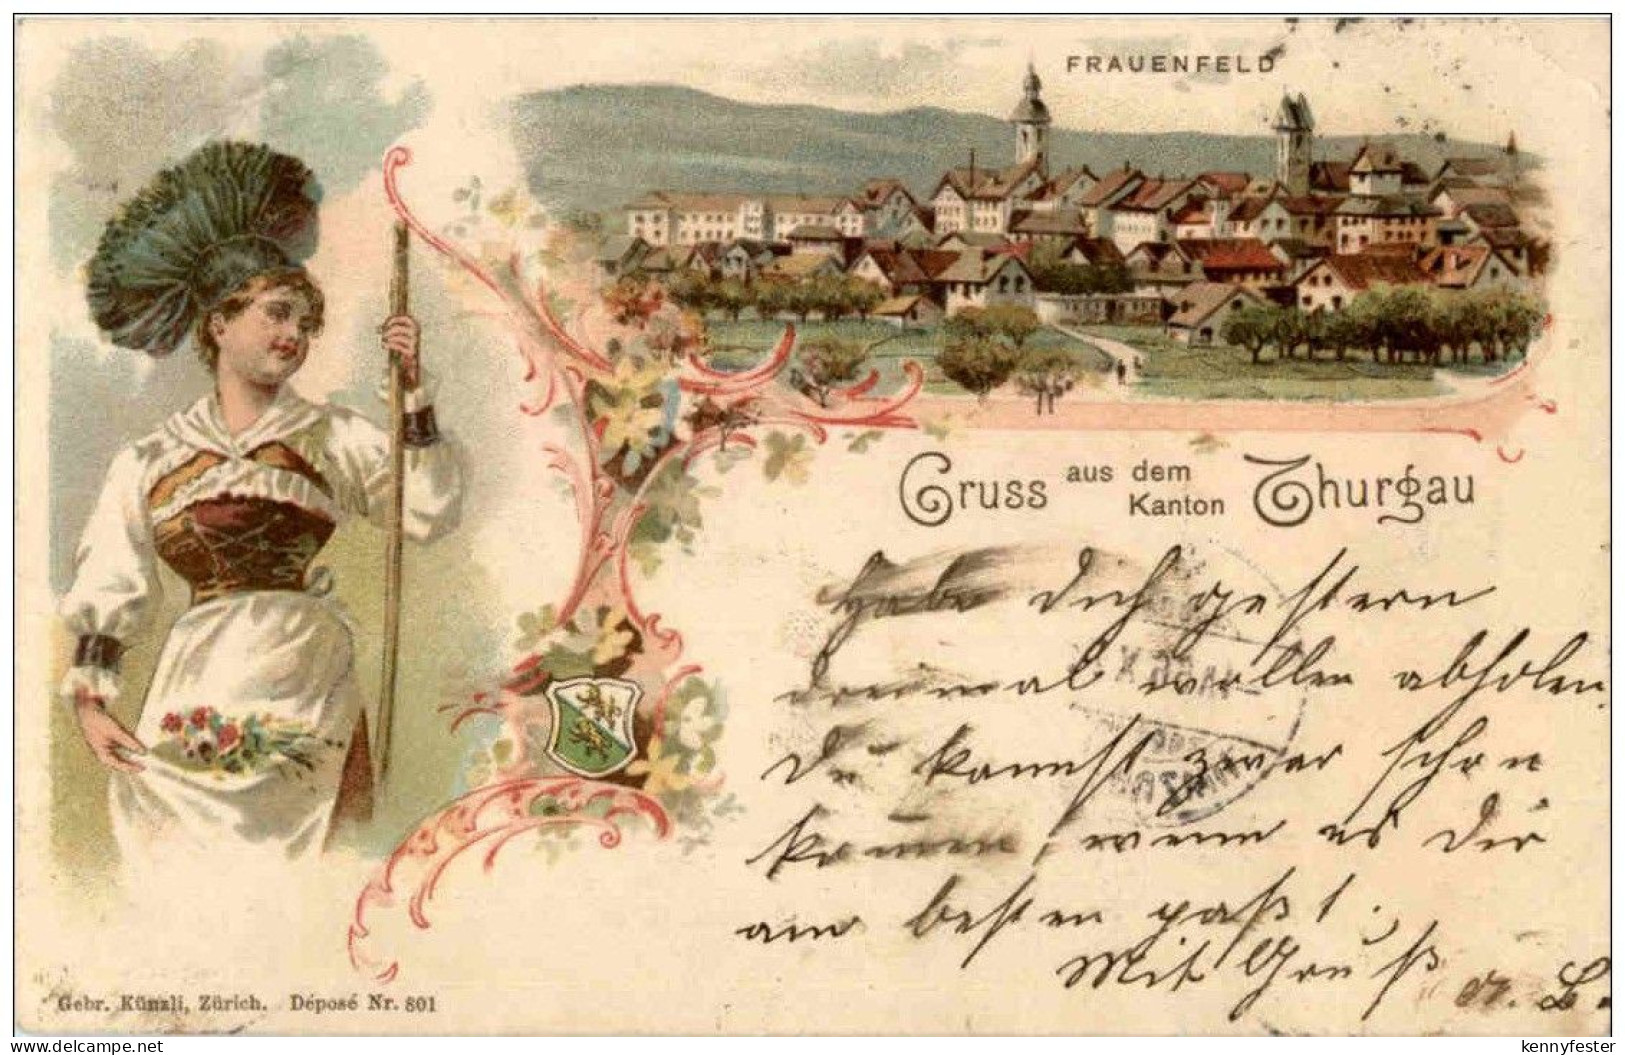 FRAUENFELD
Gruss aus dem Kanton Thurgau
Habe Dich gestern
dreimal wollen abholen.
Du kannst zwar schon
kommen, wenn es Dir
am besten paßt.
Mit Gruß
L.
Gebr. Künzli, Zürich. Déposé Nr. 801
delcampe.net
kennyfester